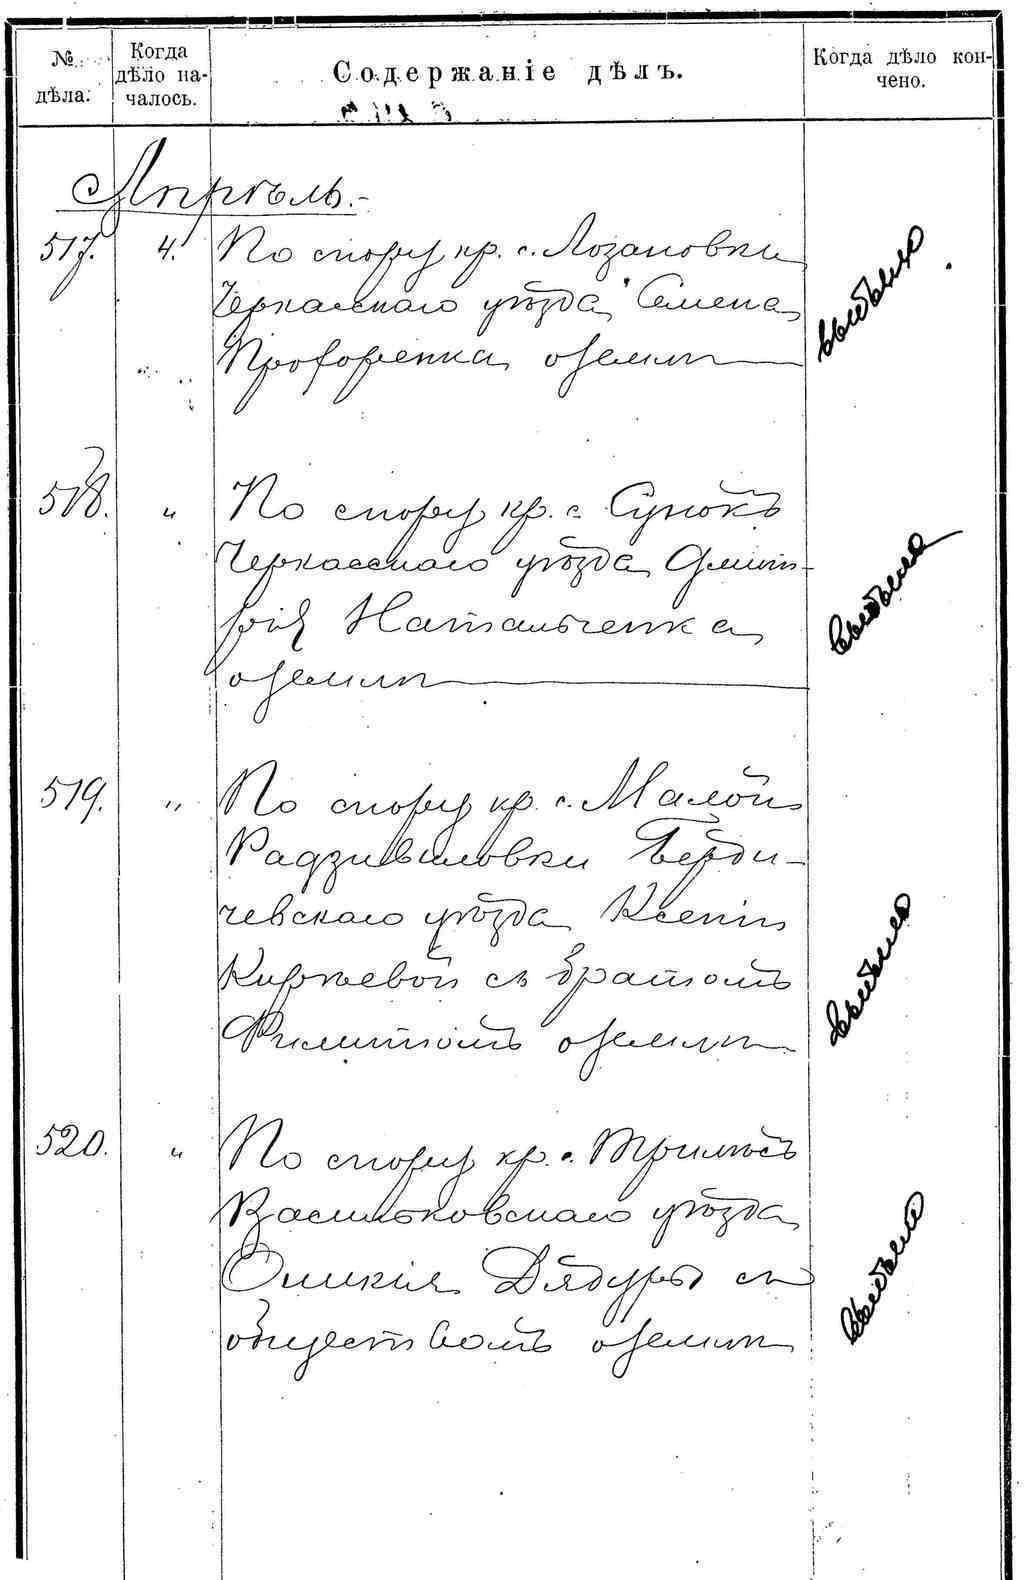 № дѣла.
Когда дѣло началось.
Содержаніе дѣлъ.
Когда дѣло кончено.
Апрѣль.-
517. 4. По спору кр. с. Лозановки
Черкасскаго уѣзда Семена
Прохоренка о землѣ
518. " По спору кр. с. Сунокъ
Черкасскаго уѣзда Дмит-
рія Натальченка
о землѣ
519. " По спору кр. с. Малой
Радзивиловки Берди-
чевскаго уѣзда Ксеніи
Киреевой съ братомъ
Филиппомъ о землѣ
520. " По спору кр. с. Трилѣсъ
Васильковскаго уѣзда
Дядуры съ
обществомъ о землѣ